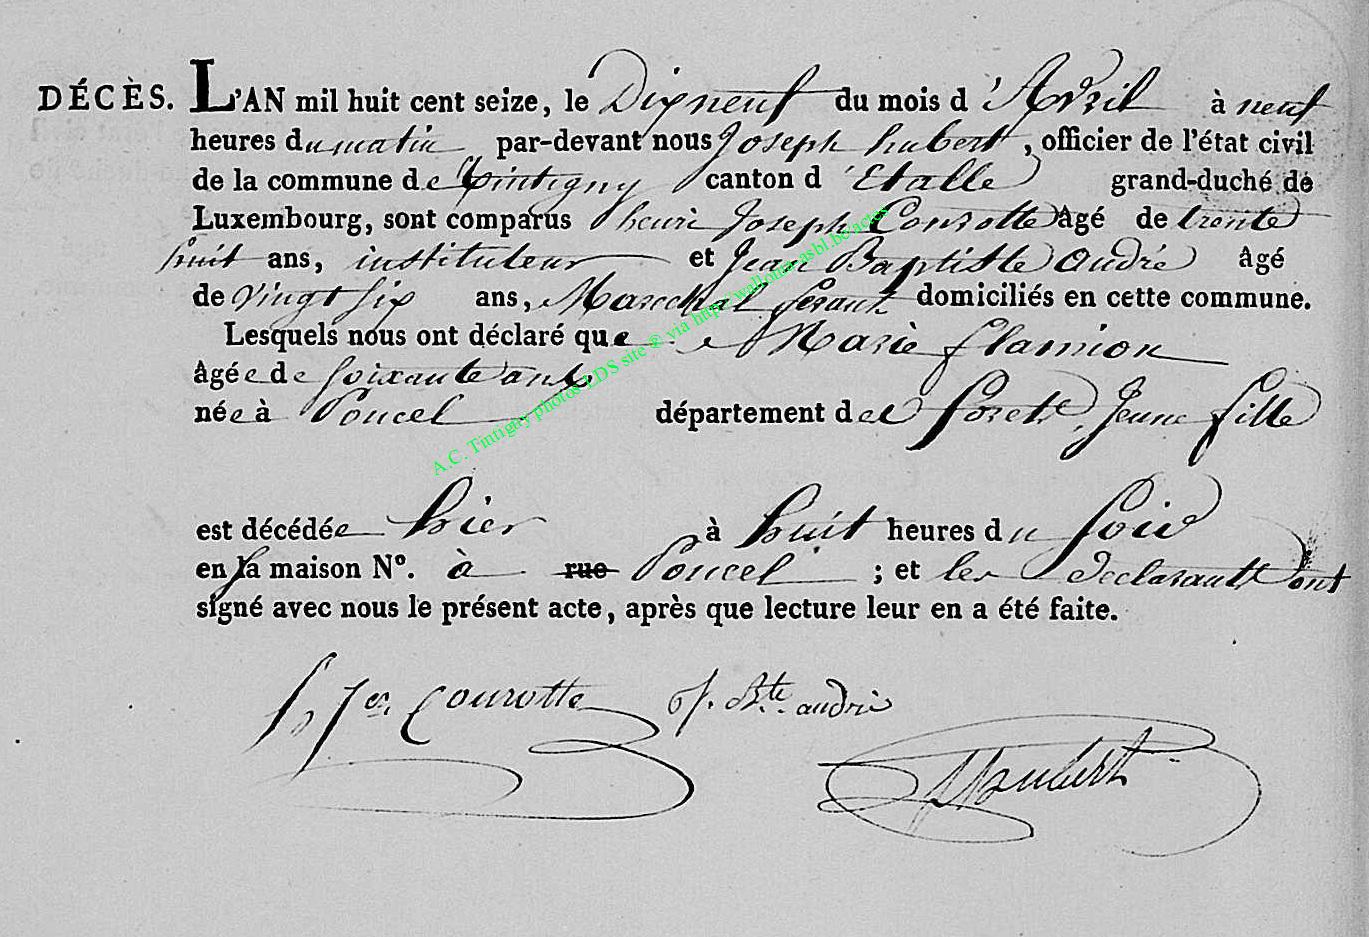 DÉCÈS. L'AN mil huit cent seize, le Dixneuf du mois d'Avril à neuf
heures du matin par-devant nous Joseph hubert, officier de l'état civil
de la commune de Tintigny canton d'Etalle grand-duché de
Luxembourg, sont comparus henri Joseph Courotte âgé de trente
huit ans, instituteur et Jean Baptiste andré âgé
de vingt six ans, Marechal ferant domiciliés en cette commune.
Lesquels nous ont déclaré que Marie flamion
âgée de soixante ans
née à Poncel département des forets, Jeune fille
est décédée hier à huit heures du soir
en sa maison N°. à rue Poncel ; et les declarants ont
signé avec nous le présent acte, après que lecture leur en a été faite.
h Jos. Courotte J. Bte. andré
Hubert
A.C. Tintigny photos LDS site ® via http://wallonia-asbl.be/actes